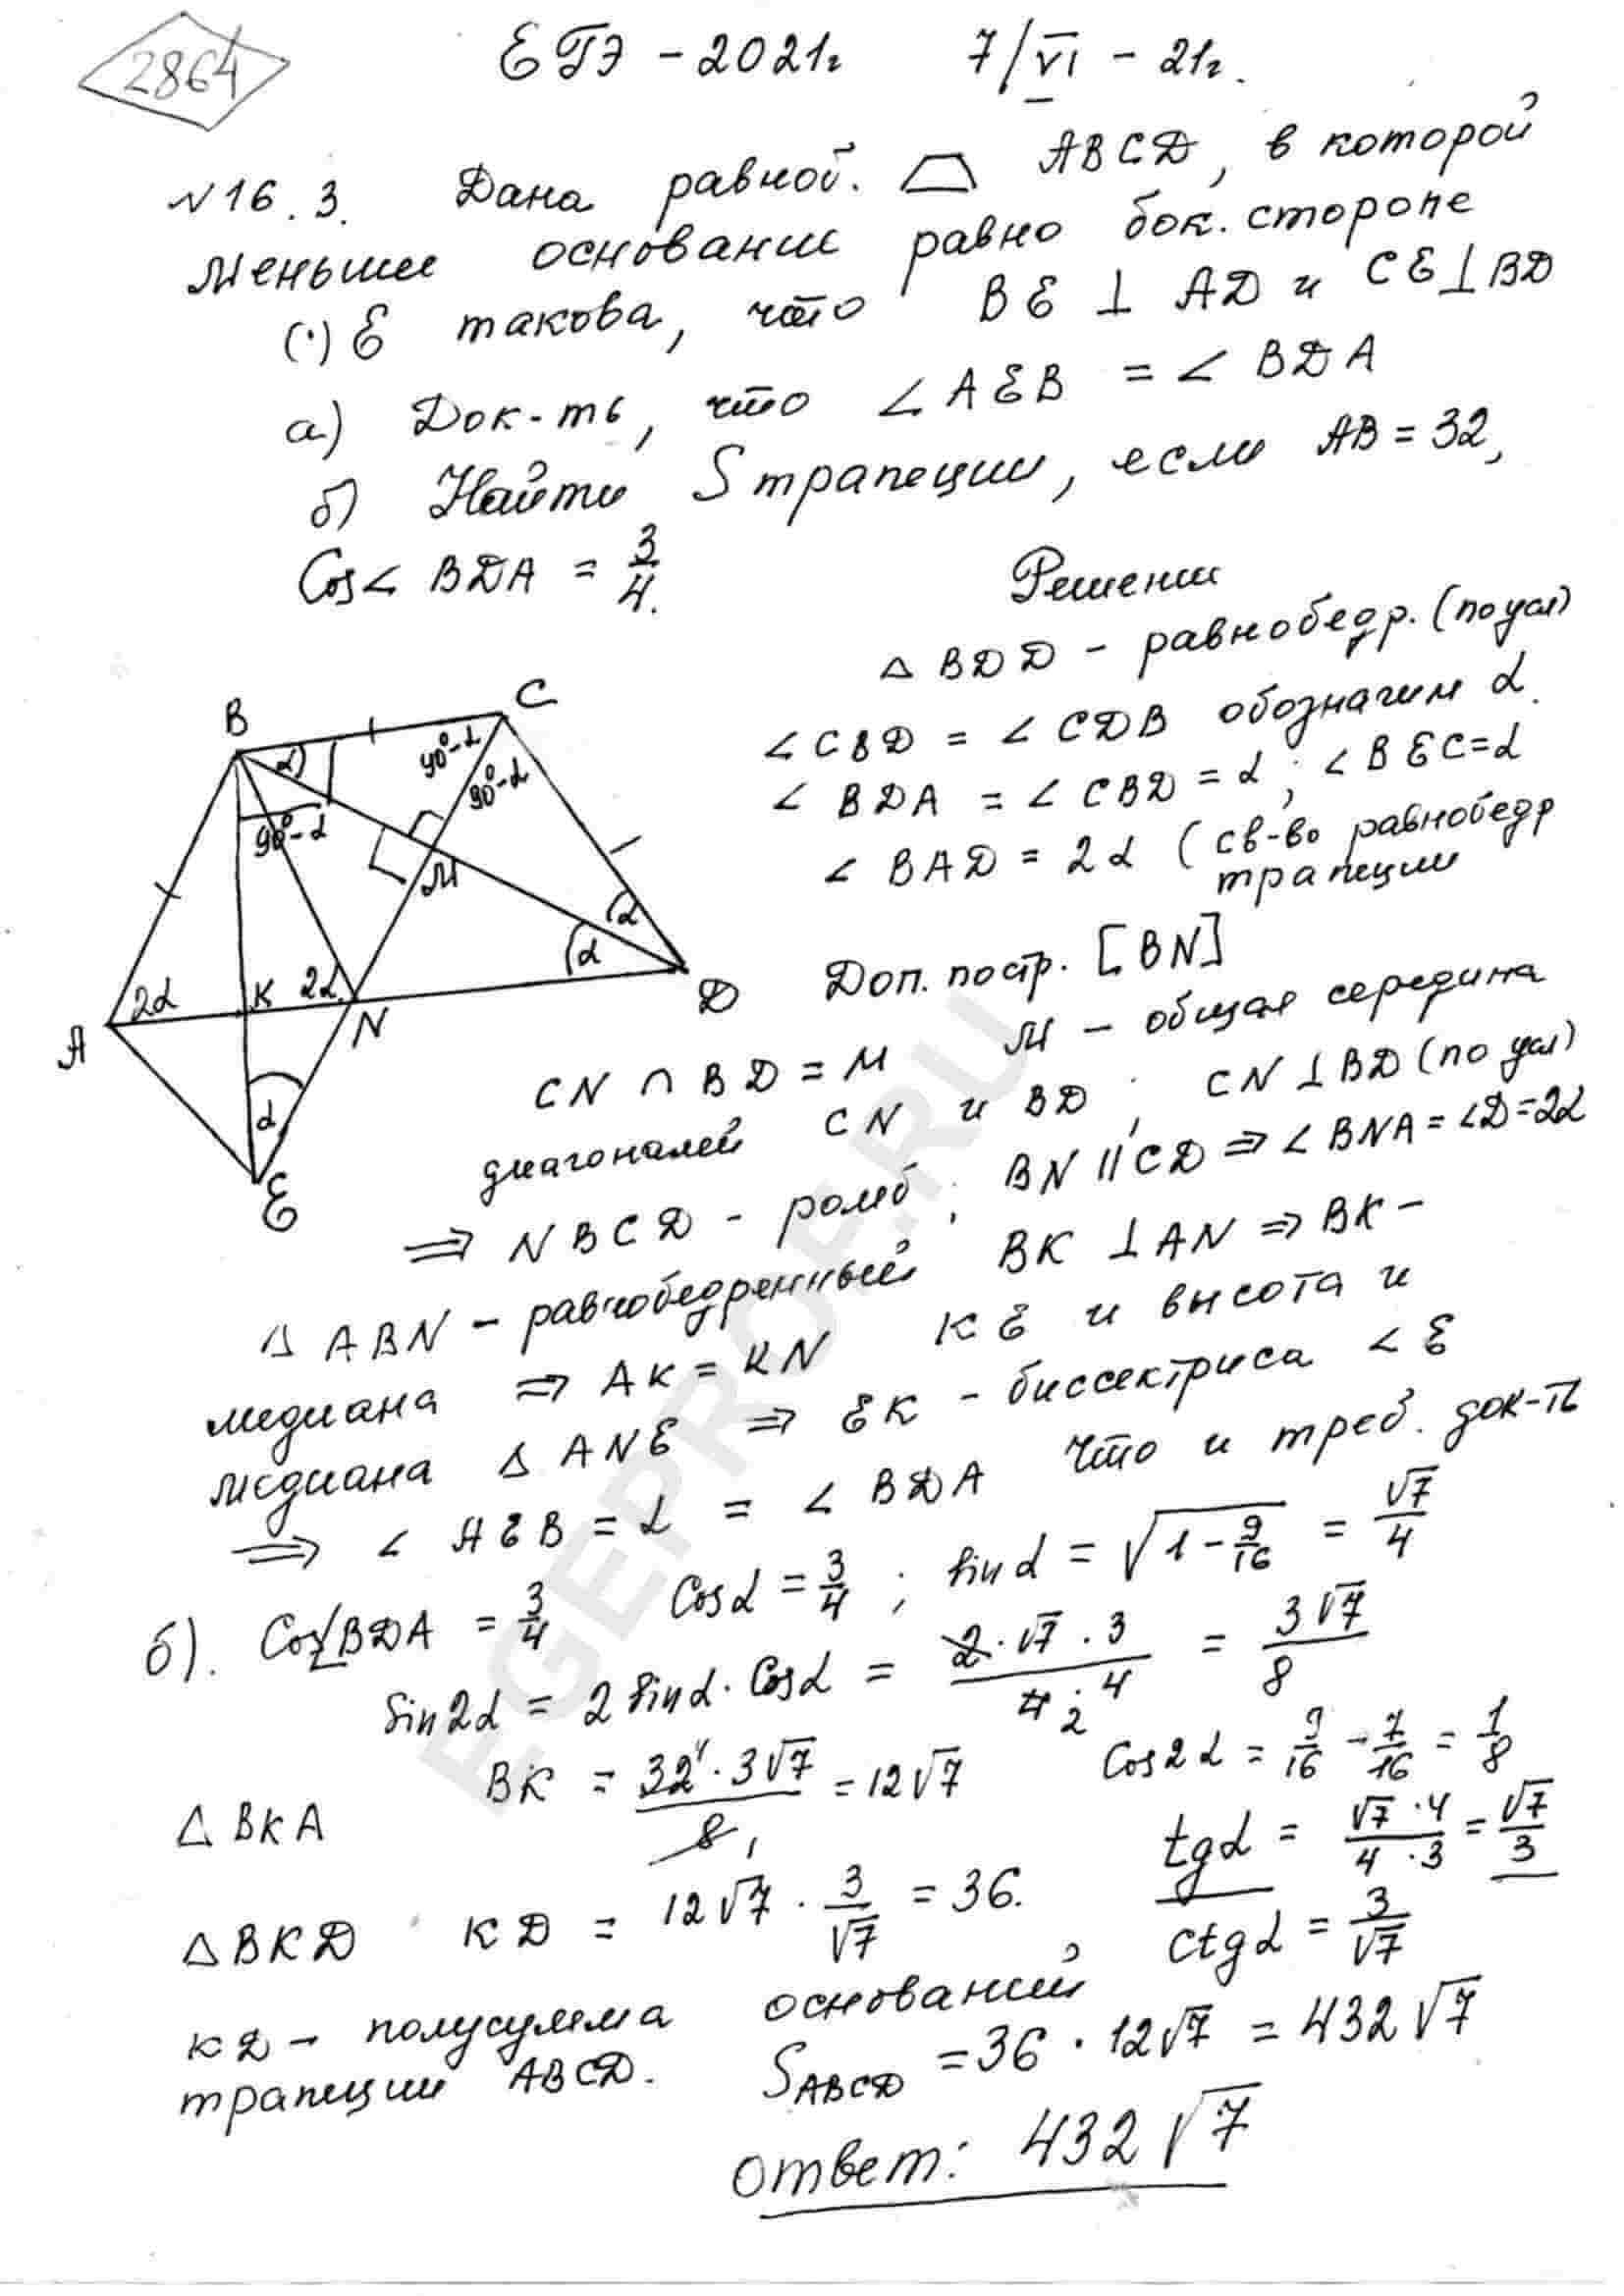 2864
ЕГЭ - 2021г 7/VI - 21г.
№16.3. Дана равноб. ABCD, в которой
меньшее основание равно бок. стороне
(·) E такова, что BE ⊥ AD и CE ⊥ BD
а) Док-ть, что ∠AEB = ∠BDA
б) Найти S трапеции, если AB = 32,
Cos∠BDA = 3/4.
Решение
△ BDD - равнобедр. (по усл)
∠CBD = ∠CDB обозначим α.
∠BDA = ∠CBD = α; ∠BEC = α
∠BAD = 2α (св-во равнобедр
трапеции
B
C
α
90°-α
90°-α
90°-α
M
α
α
2α
K
2α
A
N
D
α
E
Доп. постр. [BN]
CN ∩ BD = M M - общая середина
диагоналей CN и BD; CN ⊥ BD (по усл)
⇒ NBCD - ромб; BN || CD ⇒ ∠BNA = ∠D = 2α
△ ABN - равнобедренный BK ⊥ AN ⇒ BK -
медиана ⇒ AK = KN KE и высота и
медиана △ ANE ⇒ EK - биссектриса ∠E
⇒ ∠AEB = α = ∠BDA Что и треб. док-ть
б). Cos∠BDA = 3/4 Cosα = 3/4; sinα = √(1 - 9/16) = √7/4
Sin2α = 2 sinα · Cosα = 2·√7·3 / 4·4 2 = 3√7/8
△ BKA BK = 32 4·3√7 / 8 1 = 12√7 Cos2α = 9/16 - 7/16 = 1/8
tgα = √7·4 / 4·3 = √7/3
△ BKD KD = 12√7 · 3/√7 = 36. ctgα = 3/√7
KD - полусумма оснований
трапеции ABCD. S ABCD = 36 · 12√7 = 432√7
ответ: 432√7
EGEPROF.RU